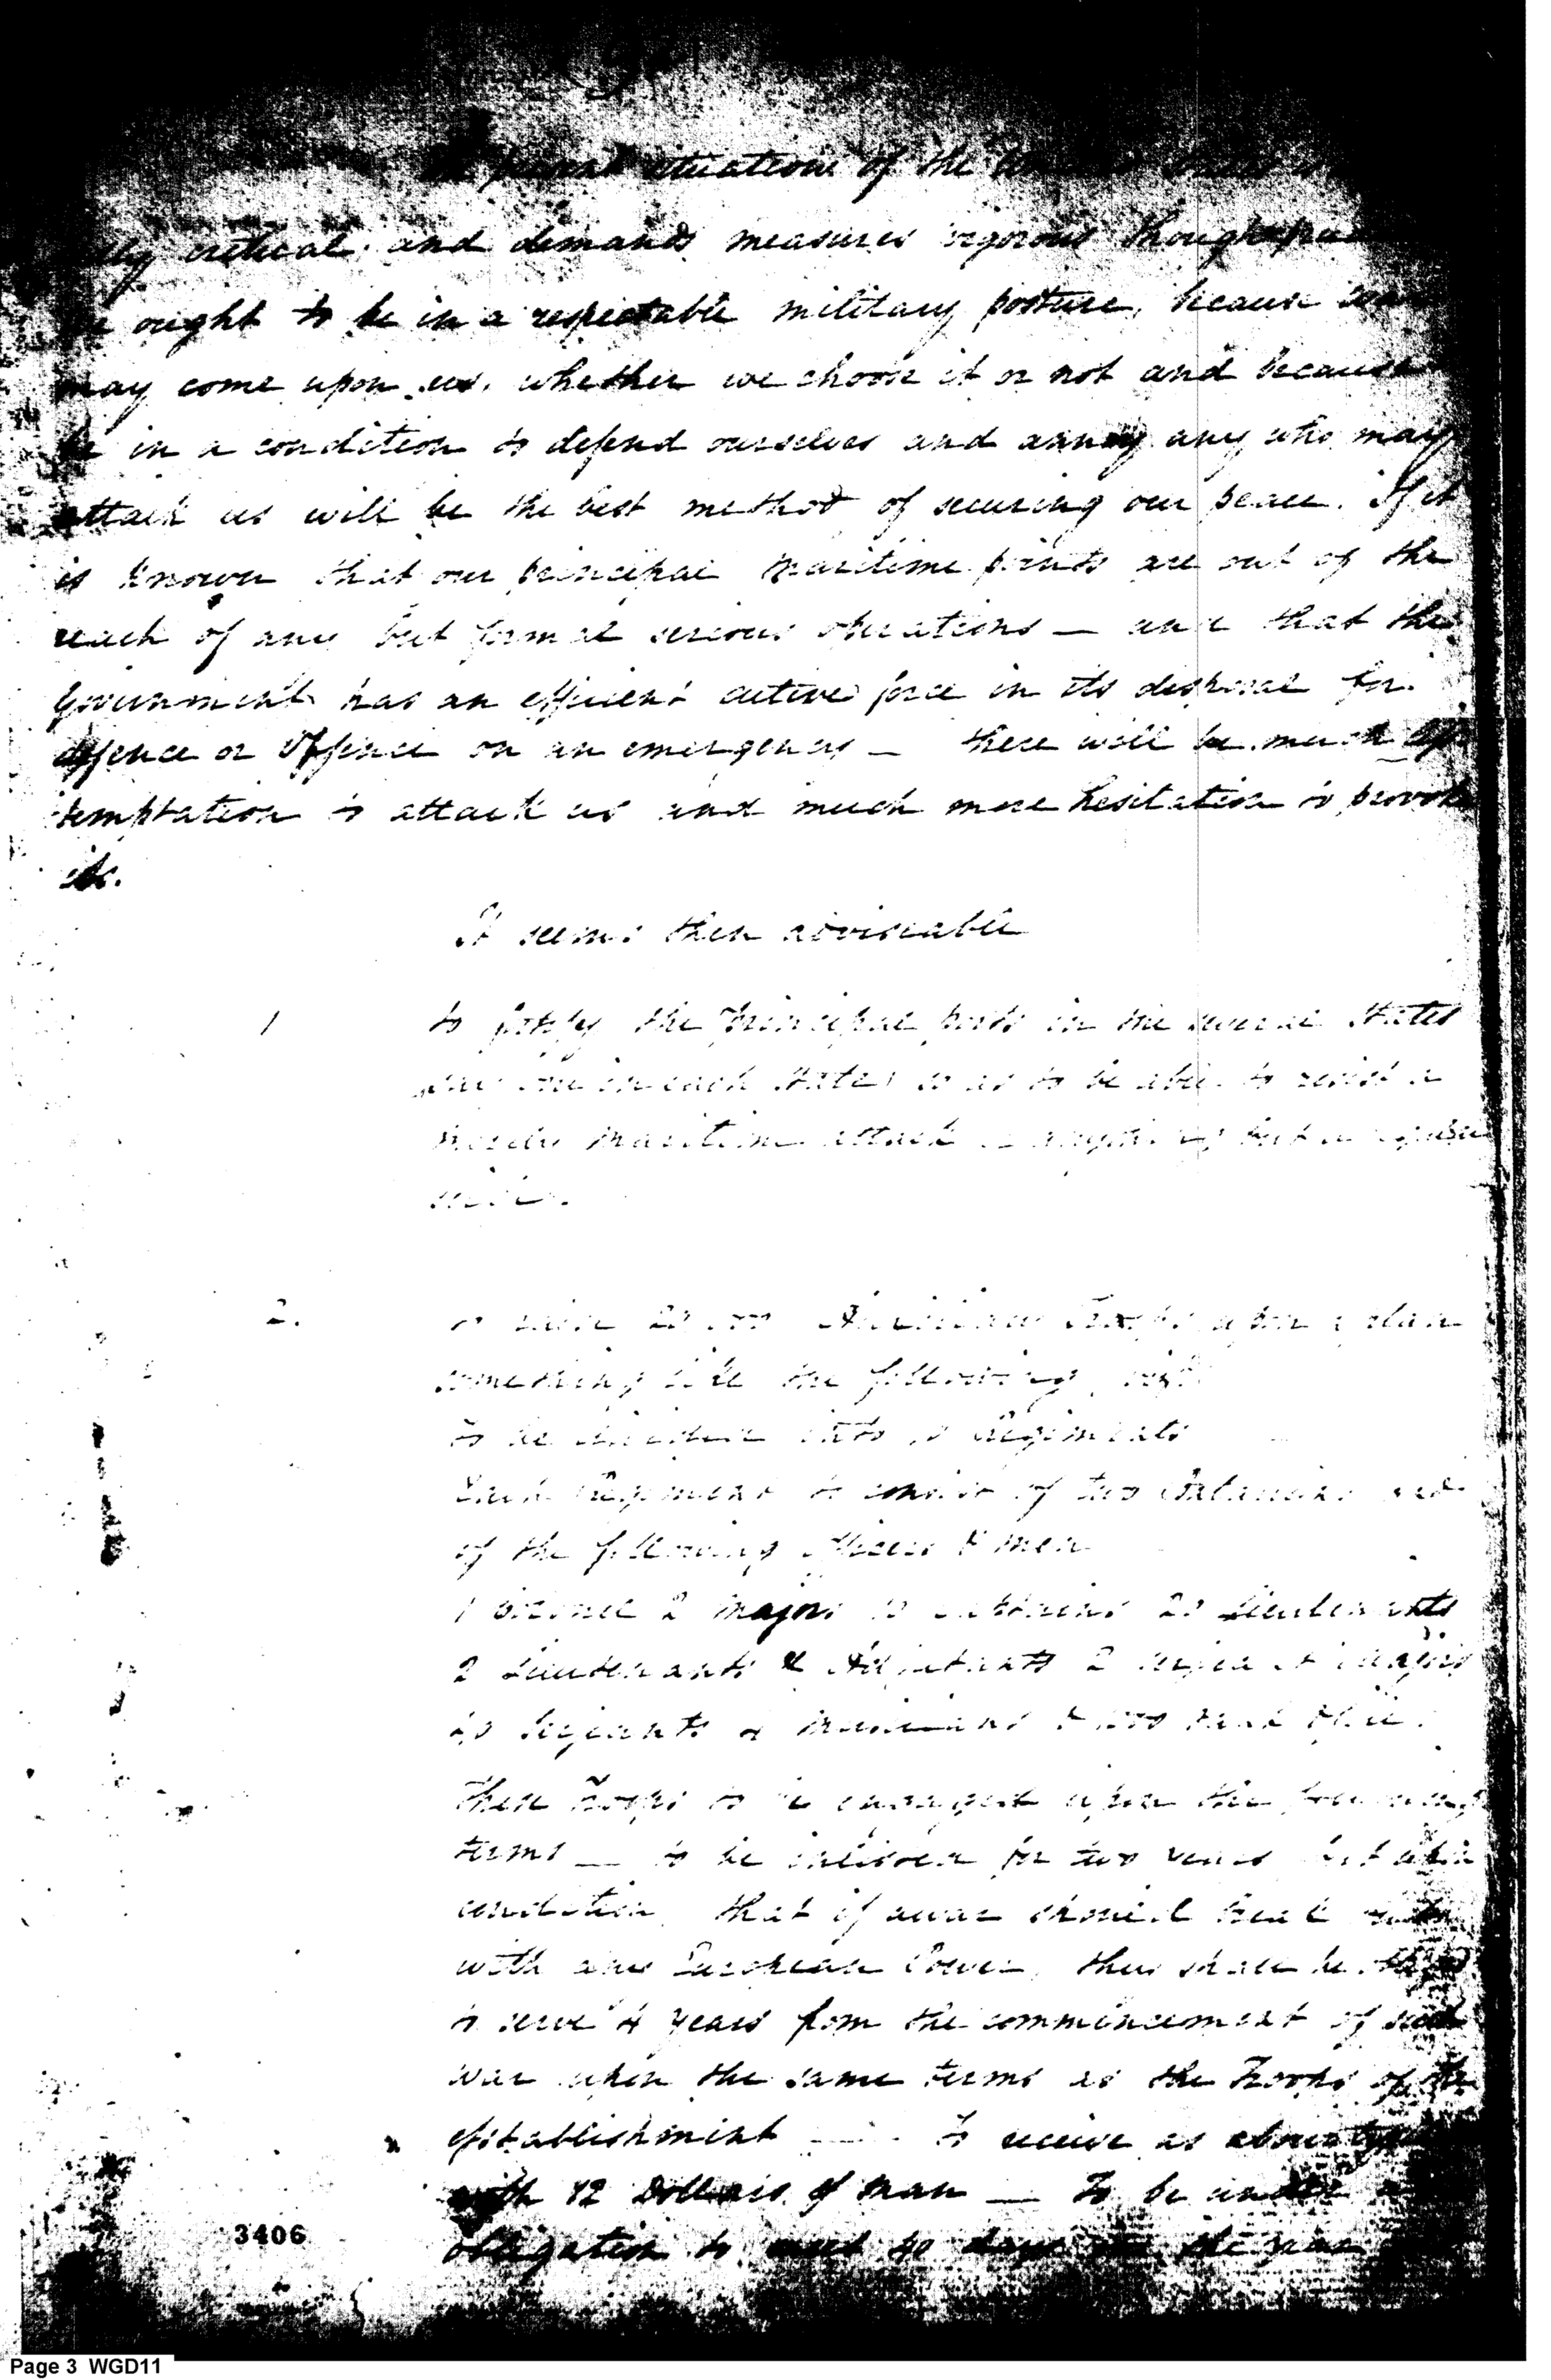 present situation of the United States is
critical and demands measures vigorous though
ought to be in a respectable military posture, because war
may come upon us, whether we choose it or not and because
be in a condition to defend ourselves and annoy any who may
attack us will be the best method of securing our peace. If it
is known that our principal maritime points are out of the
reach of any but formal serious operations — and that the
Government has an efficient active force in its disposal for
defence or Offence on an emergency — there will be much less
temptation to attack us and much more hesitation to provoke
us.
It seems then adviseable
1 to fortify the Principal ports in the several States
say one in each State) so as to be able to resist a
merely maritime attack or anything but a regular
2. to raise Auxiliary Troops upon a plan
something like the following, viz
to be divided into Regiments
Each Regiment to consist of two Batalions and
of the following officers & men
1 Colonel 2 Majors 10 Captains 20 Lieutenants
2 Lieutenants & Adjutants 2 serjeant majors
Serjeants musicians & rank & file.
These Troops to be engaged upon the following
terms — to be inlisted for two years but upon
condition, that if a war should break out
with any European Power, they shall be
to serve 4 years from the commencement of such
war upon the same terms as the Troops of the
establishment — To receive as a bounty
12 Dollars man — To be under
obligation to meet 40 days in the year
3406
Page 3 WGD11